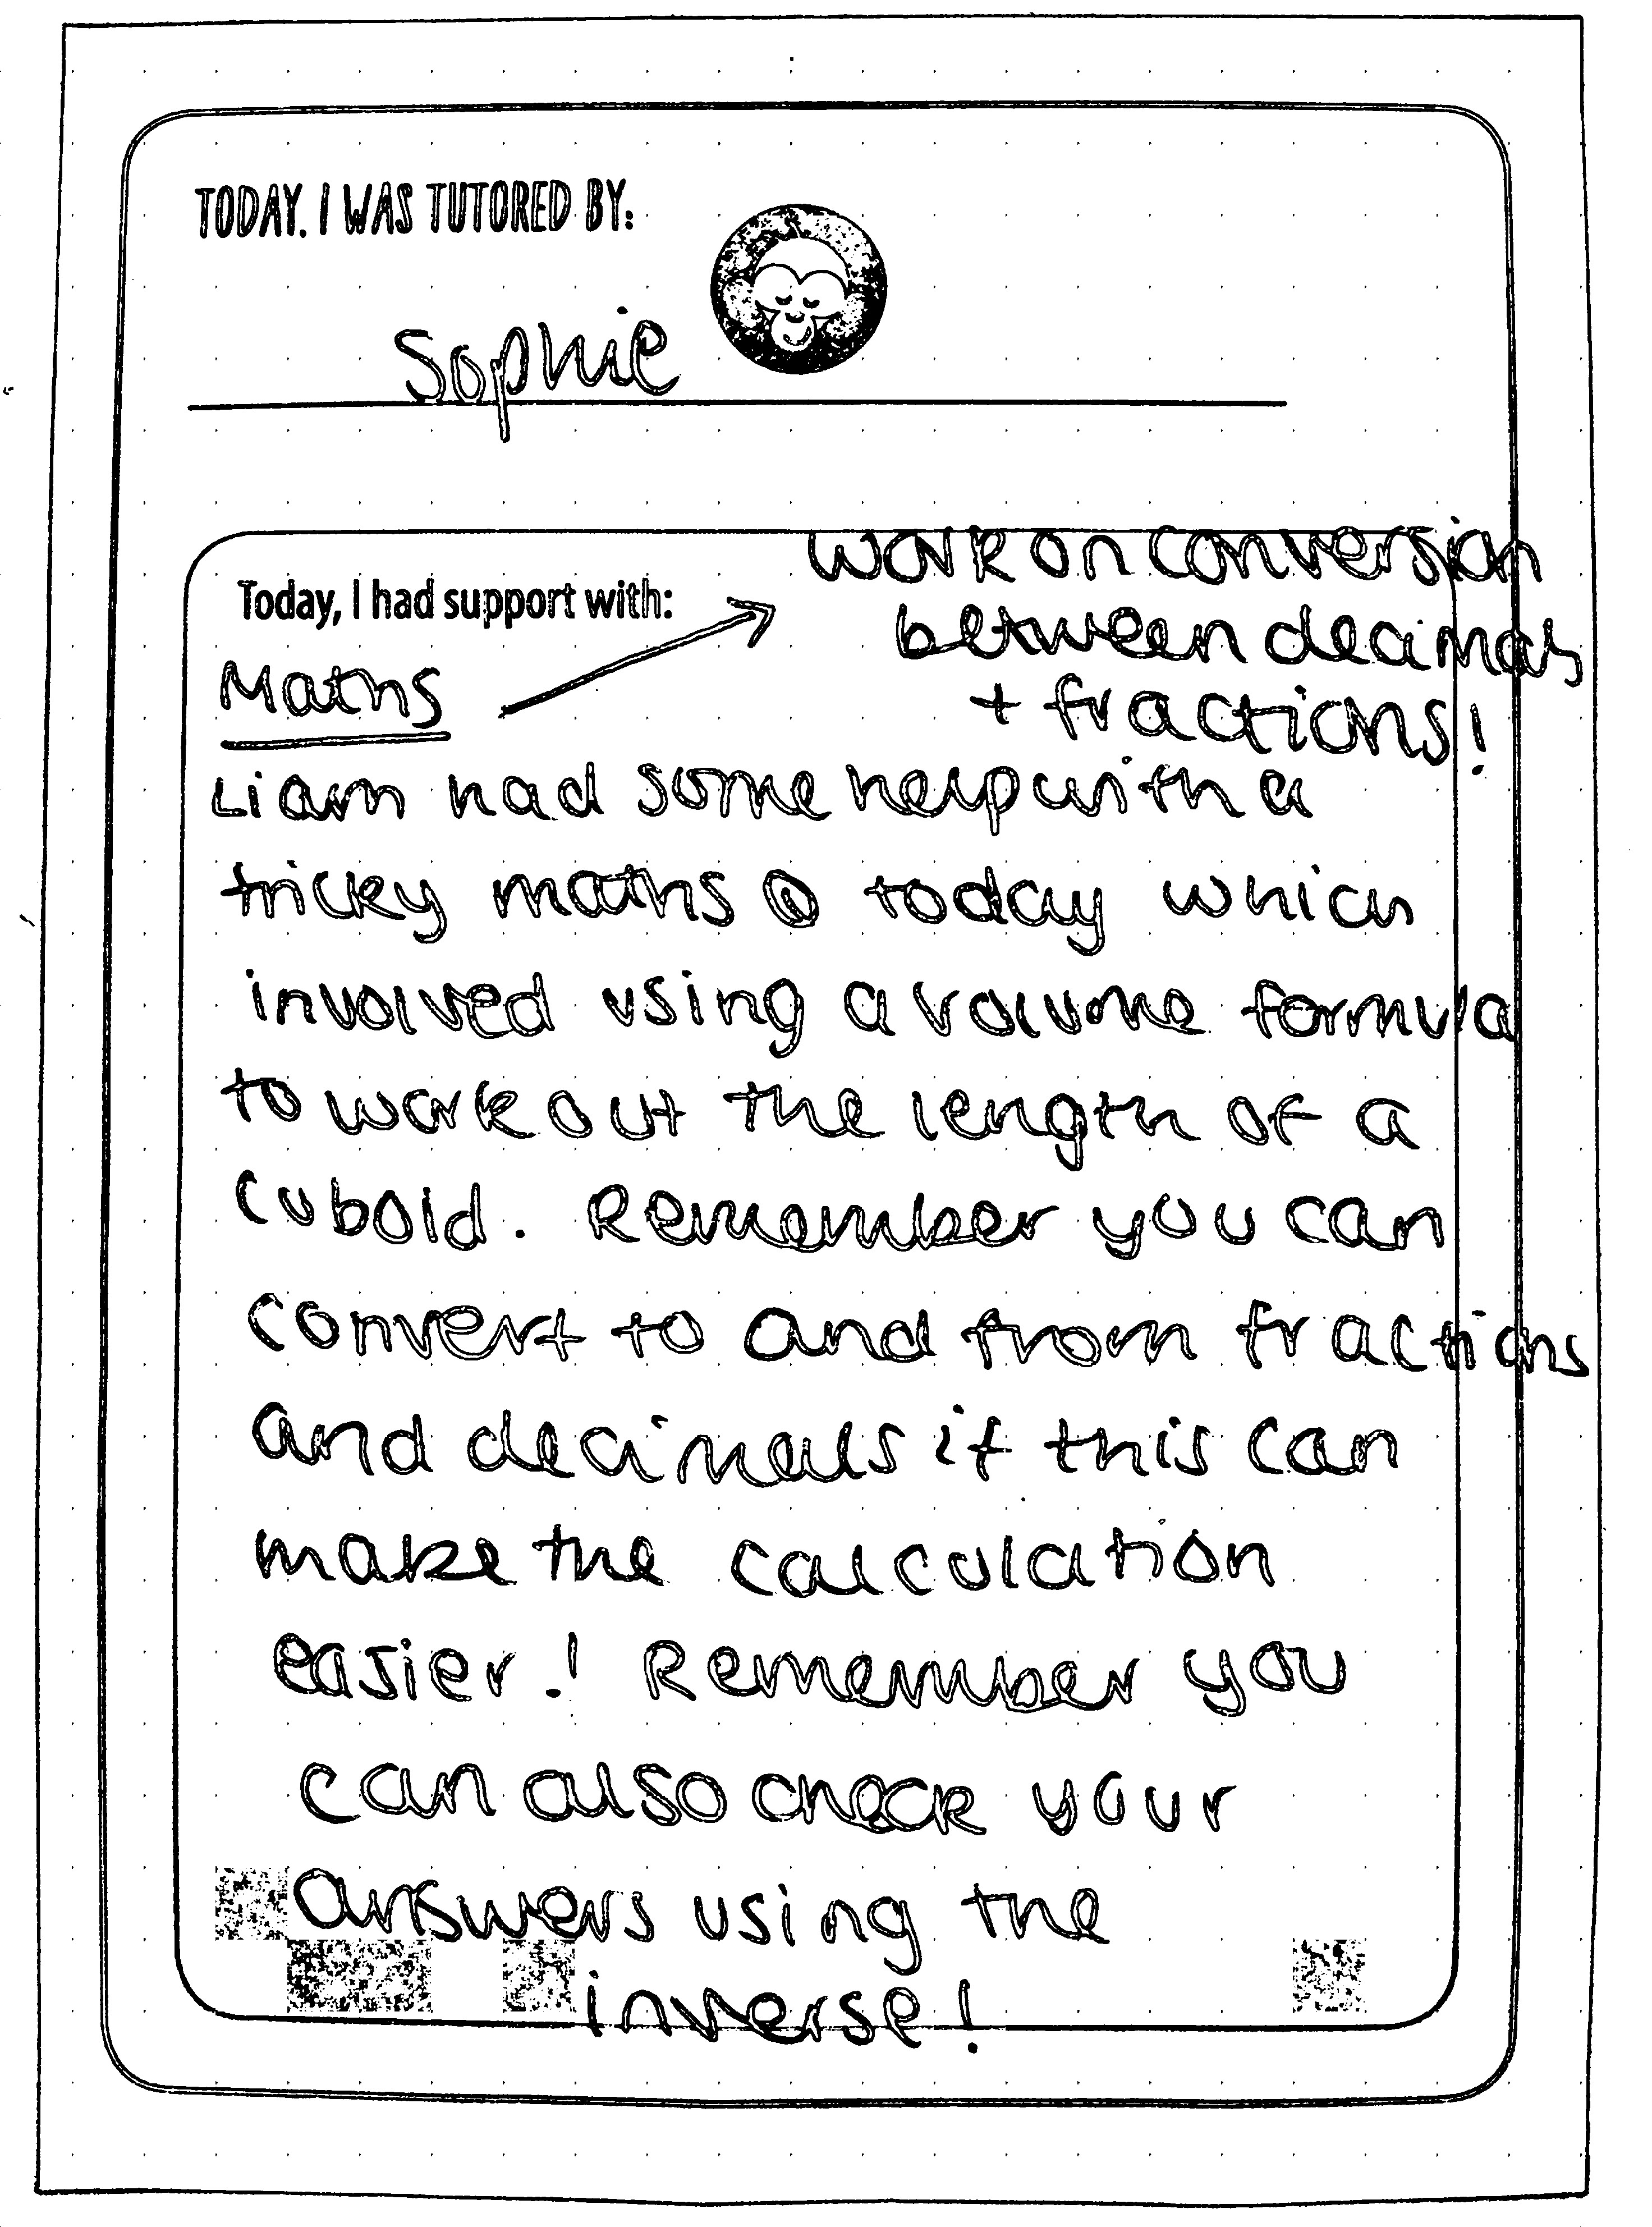 TODAY, I WAS TUTORED BY:
Sophie
Today, I had support with:
work on conversion
between decimals
+ fractions!
Maths
Liam had some help with a
tricky maths Q today which
involved using a volume formula
to work out the length of a
cuboid. Remember you can
convert to and from fractions
and decimals if this can
make the calculation
easier! Remember you
can also check your
answers using the
inverse!